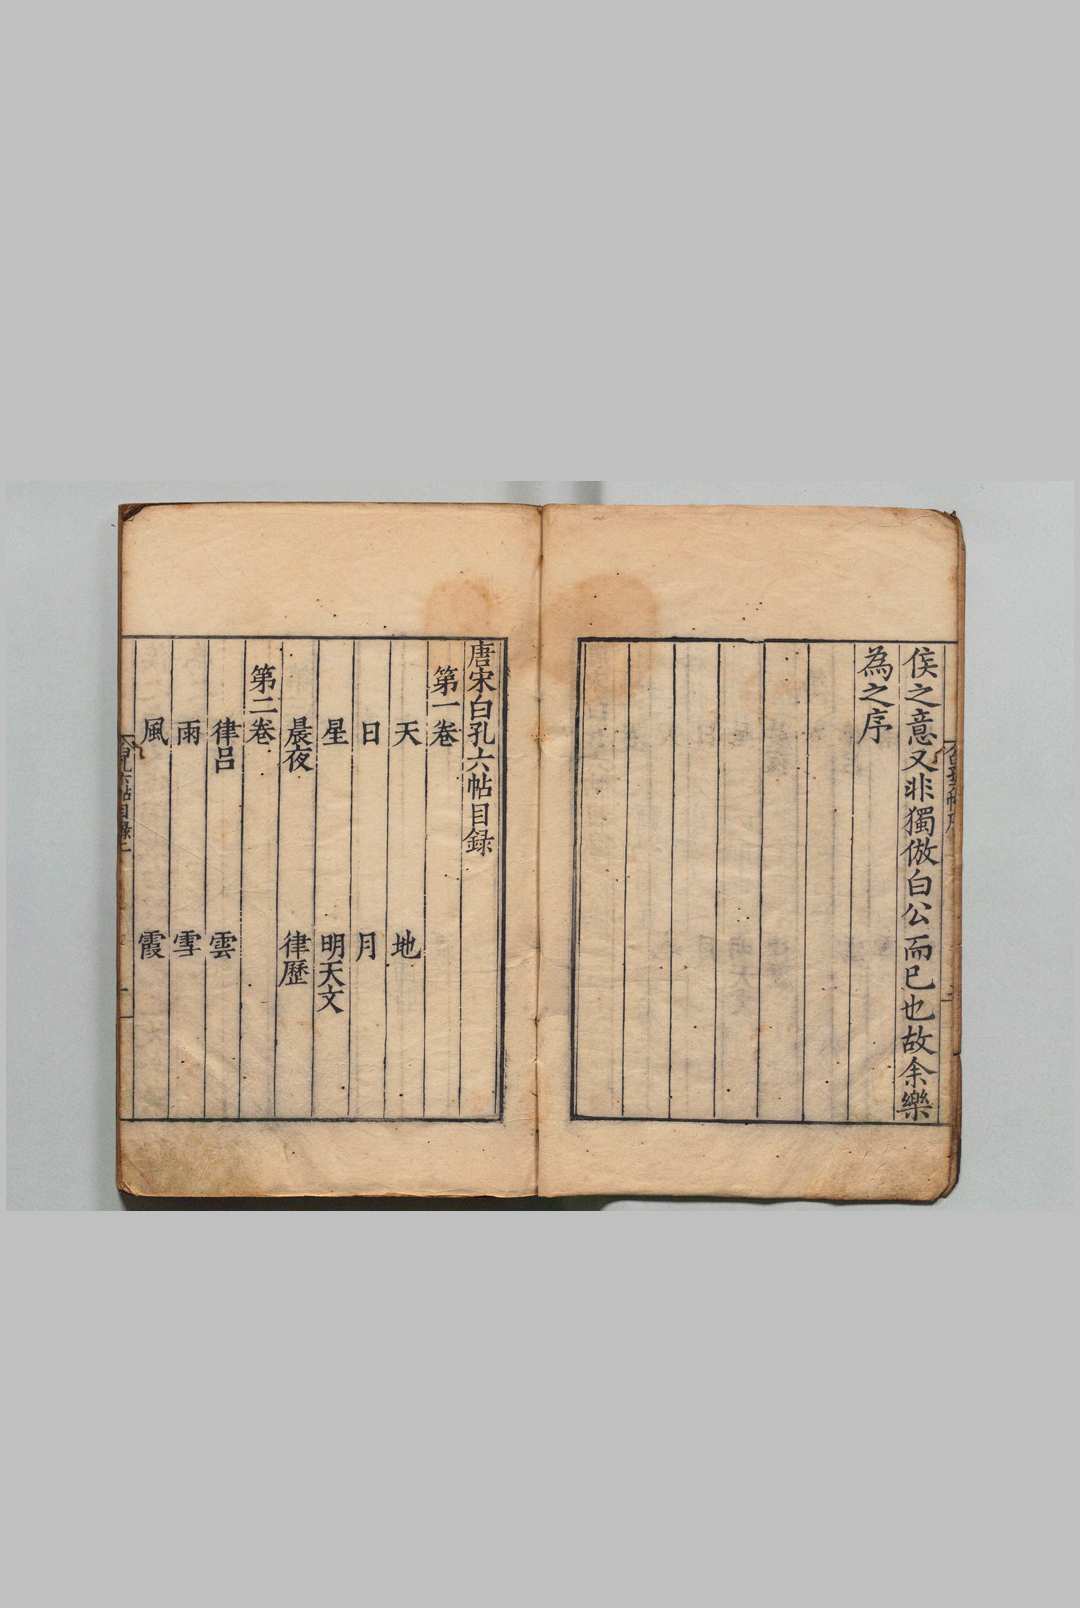 侯之意又非獨倣白公而已也故余樂
為之序
唐宋白孔六帖目録
第一卷
天 地
日 月
星 明天文
晨夜 律歷
第二卷
律呂 雲
雨 雪
風 霞
白孔六帖目録